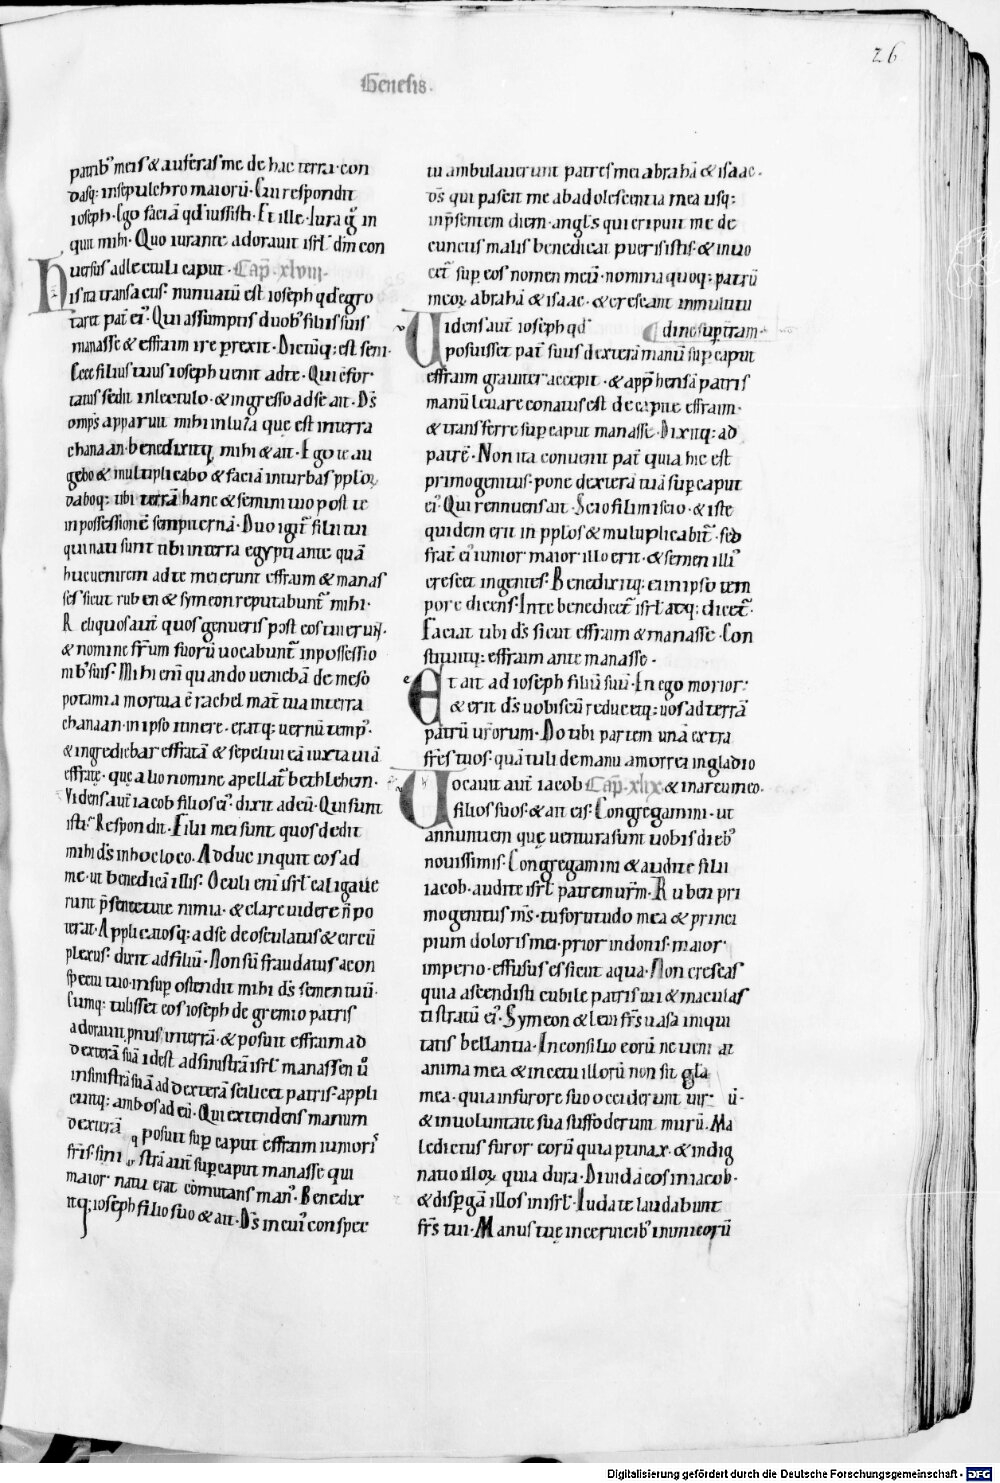 26
Genesis.
patrib᷒ meis & auferas me de hac terra· con
dasq; in sepulchro maiorū· Cui respondit
ioseph· Ego faciā qd̄ iussisti· Et ille· Iura g̊ in
quit mihi· Quo iurante adorauit isrl̄ dm̄ con
uersus ad lectuli caput· Cap̄· xlviii·
His ita transactis· nuntiatū est ioseph qd̄ egro
taret pat̄ ei᷒· Qui assumptis duob᷒ filiis suis
manasse & effraim ire perrexit· Dictūq; est seni·
Ecce filius tuus ioseph uenit ad te· Qui c̄for
tatus sedit in lectulo· & ingresso ad se ait· Ds̄
omp̄s apparuit mihi in luza que est in terra
chanaan· benedixitq; mihi & ait· Ego te au
gebo & multiplicabo & faciā in turbas pploꝝ
daboq; tibi terrā hanc & semini tuo post te
in possessionē sempiternā· Duo igit̄ filii tui
qui nati sunt tibi in terra egypti ante quā
huc uenirem ad te mei erunt effraim & manas
ses sicut ruben & symeon reputabunt̄ mihi·
Reliquos aut̄ quos genueris post eos tui erun̄t·
& nomine fr̄um suorū uocabunt̄ in possessio
nib᷒ suis· Mihi eni quando ueniebā de meso
potamia mortua ē rachel mat̄ tua in terra
chanaan· in ipso itinere· eratq; uernū temp᷒·
& ingrediebar effratā & sepeliui eā iuxta uiā
effrate· que alio nomine apellat̄ bethlehem·
Videns aut̄ iacob filios ei᷒· dixit ad eū· Qui sunt
isti· Respondit· Filii mei sunt quos dedit
mihi ds̄ in hoc loco· Adduc inquit eos ad
me· ut benedicā illis· Oculi eni isrl̄ caligaue
runt p̄ senectute nimia· & clare uidere n̄ po
terat· Applicatosq; ad se deosculatus & circū
plexus· dixit ad filiū· Non sū fraudatus a con
spectu tuo· insup ostendit mihi ds̄ semen tuū·
Cumq; tulisset eos ioseph de gremio patris
adorauit pnus in terrā· & posuit effraim ad
dexterā suā idest ad sinistrā isrl̄· manassen ů
in sinistrā suā ad dexterā scilicet patris· appli
cuitq; ambos ad eū· Qui extendens manum
dexterā posuit sup caput effraim iunioris
fr̄is· sinistrā aut̄ sup caput manasse qui
maior natu erat cōmutans man᷒· Benedix
itq; ioseph filio suo & ait· Ds̄ in cui᷒ conspec
tu ambulauerunt patres mei abrahā & isaac·
ds̄ qui pascit me ab adolescentia mea usq;
in p̄sentem diem· angl̄s qui eripuit me de
cunctis malis benedicat pueris istis· & inuo
cet̄ sup eos nomen meū· nomina quoq; patrū
meoꝝ abrahā & isaac· & crescant in multitu
Videns aut̄ ioseph qd̄ dine sup t̄ram·
posuisset pat̄ suus dexterā manū sup caput
effraim grauiter accepit· & app̄hensā patris
manū leuare conatus est de capite effraim·
& transferre sup caput manasse· Dixitq; ad
patrē· Non ita conuenit pat̄ quia hic est
primogenitus· pone dexterā tuā sup caput
ei᷒· Qui rennuens ait· Scio fili mi scio· & iste
quidem erit in pplos & multiplicabit̄· sed
frat̄ ei᷒ iunior maior illo erit· & semen illi᷒
crescet in gentes· Benedixitq; eis in ipso tem
pore dicens· In te benedicet̄ isrl̄ atq; dicet̄·
Faciat tibi ds̄ sicut effraim & manasse· Con
stituitq; effraim ante manasse·
Et ait ad ioseph filiū suū· En ego morior·
& erit ds̄ uobiscū reducetq; uos ad terrā
patrū ur̄orum· Do tibi partem unā extra
fr̄es tuos· quā tuli de manu amorrei in gladio
Uocauit aut̄ iacob Cap̄· xlix· & in arcu meo·
filios suos· & ait eis· Congregamini· ut
annuntiem que uentura sunt uobis dieb᷒
nouissimis· Congregamini & audite filii
iacob· audite isrl̄ patrem ur̄m· Ruben pri
mogenitus m̄s· tu fortitudo mea & princi
pium doloris mei· prior in donis· maior
imperio· effusus es sicut aqua· Non crescas
quia ascendisti cubile patris tui & maculas
ti stratū ei᷒· Symeon & leui fr̄s uasa iniqui
tatis bellantia· In consilio eorū ne ueniat
anima mea & in cetu illorū non sit gl̄a
mea· quia in furore suo occiderunt uirū·
& in uoluntate sua suffoderunt murū· Ma
ledictus furor eorū quia ptinax· & indig
natio illoꝝ quia dura· Diuidā eos in iacob·
& dispgā illos in isrl̄· Iuda te laudabunt
fr̄s tui· Manus tue in ceruicib᷒ inimicorū
Digitalisierung gefördert durch die Deutsche Forschungsgemeinschaft - DFG